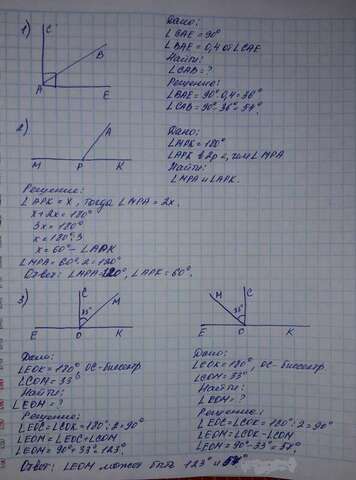 1)
C
B
A
E
Дано:
∠CAE = 90°
∠BAE = 0,4 от ∠CAE
Найти:
∠CAB = ?
Решение:
∠BAE = 90°·0,4 = 36°
∠CAB = 90°-36° = 54°.
2)
A
M P K
Дано:
∠MPK = 180°
∠APK в 2р <, чем ∠MPA
Найти:
∠MPA и ∠APK.
Решение:
∠APK = x, тогда ∠MPA = 2x.
x + 2x = 180°
3x = 180°
x = 180°:3
x = 60° - ∠APK
∠MPA = 60°·2 = 120°
Ответ: ∠MPA = 120°, ∠APK = 60°.
3)
C
M
33°
E O K
Дано:
∠EOK = 180°, OC - биссектр.
∠COM = 33°
Найти:
∠EOM = ?
Решение:
∠EOC = ∠COK = 180°:2 = 90°
∠EOM = ∠EOC + ∠COM
∠EOM = 90° + 33° = 123°.
M
C
33°
E O K
Дано:
∠EOK = 180°, OC - биссектр.
∠COM = 33°
Найти:
∠EOM = ?
Решение:
∠EOC = ∠COK = 180°:2 = 90°
∠EOM = ∠COK - ∠COM
∠EOM = 90° - 33° = 57°.
Ответ: ∠EOM может быть 123° и 57°